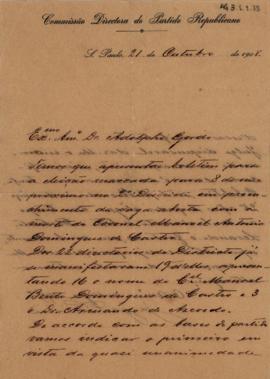 Commissão Directora do Partido Republicano
S. Paulo, 21 de Outubro de 1908.
Exmo. Amo. Dr. Adolpho Gordo
Temos que apresentar boletim para
a eleição marcada para 3 de
proximo no 2º em
chimento da vaga aberta com a
morte do Coronel Manoel Antonio
Domingues de Castro
Dos 22 directorios do Districto já
se manifestaram 19 delles, apresen
tando 16 o nome do Cel. Manoel
Bento Domingues de Castro e 3
o Dr. Armando de Azevedo.
De accordo com as bases do partido
vamos indicar o primeiro em
vista da quasi unanimidade